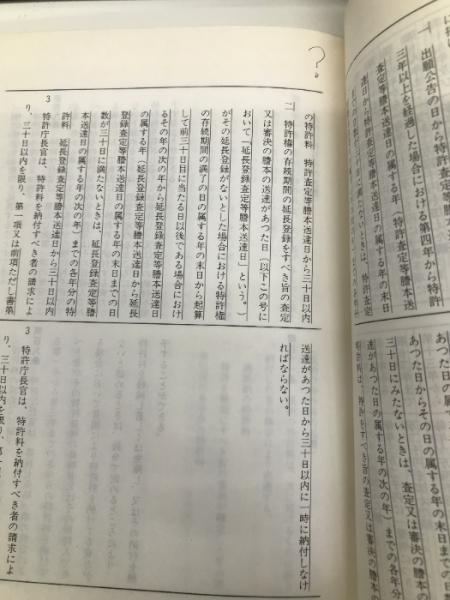 一　出願公告の日から特許査定等謄本
三年以上を経過した場合における第四年から特許
査定等謄本送達日の属する年（特許査定等謄本送
達日から特許査定等謄本送達日の属する年の末日
の特許料　特許査定等謄本送達日から三十日以内
二　特許権の存続期間の延長登録をすべき旨の査定
又は審決の謄本の送達があつた日（以下この号に
おいて「延長登録査定等謄本送達日」という。）
がその延長登録がないとした場合における特許権
の存続期間の満了の日の属する年の末日から起算
して前三十日目に当たる日以後である場合におけ
るその年の次の年から延長登録査定等謄本送達日
の属する年（延長登録査定等謄本送達日から延長
登録査定等謄本送達日の属する年の末日までの日
数が三十日に満たないときは、延長登録査定等謄
本送達日の属する年の次の年）までの各年分の特
許料　延長登録査定等謄本送達日から三十日以内
3　特許庁長官は、特許料を納付すべき者の請求によ
り、三十日以内を限り、第一項又は前項ただし書第
あつた日の属する
あつた日からその日の属する年の末日までの日
三十日にみたないときは、査定又は審決の謄本の
達があつた日の属する年の次の年）までの各年分
特許料は、特許をすべき旨の査定
送達があつた日から三十日以内に一時に納付しなけ
ればならない。
3　特許庁長官は、特許料を納付すべき者の請求によ
り、三十日以内を限り、第
？